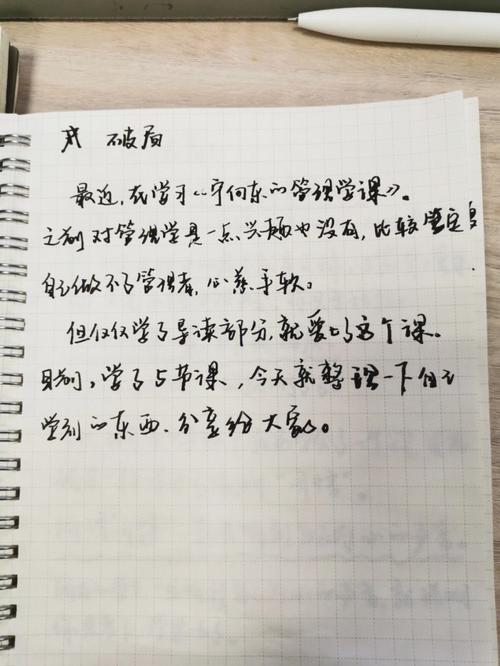 破局
最近,在学习《宁向东的管理学课》。
之前对管理学是一点兴趣也没有,比较笃定自
自己做不了管理者,心慈手软。
但仅仅学了导读部分,就爱上了这个课。
目前,学了5节课,今天就整理一下自己
学到的东西、分享给大家。